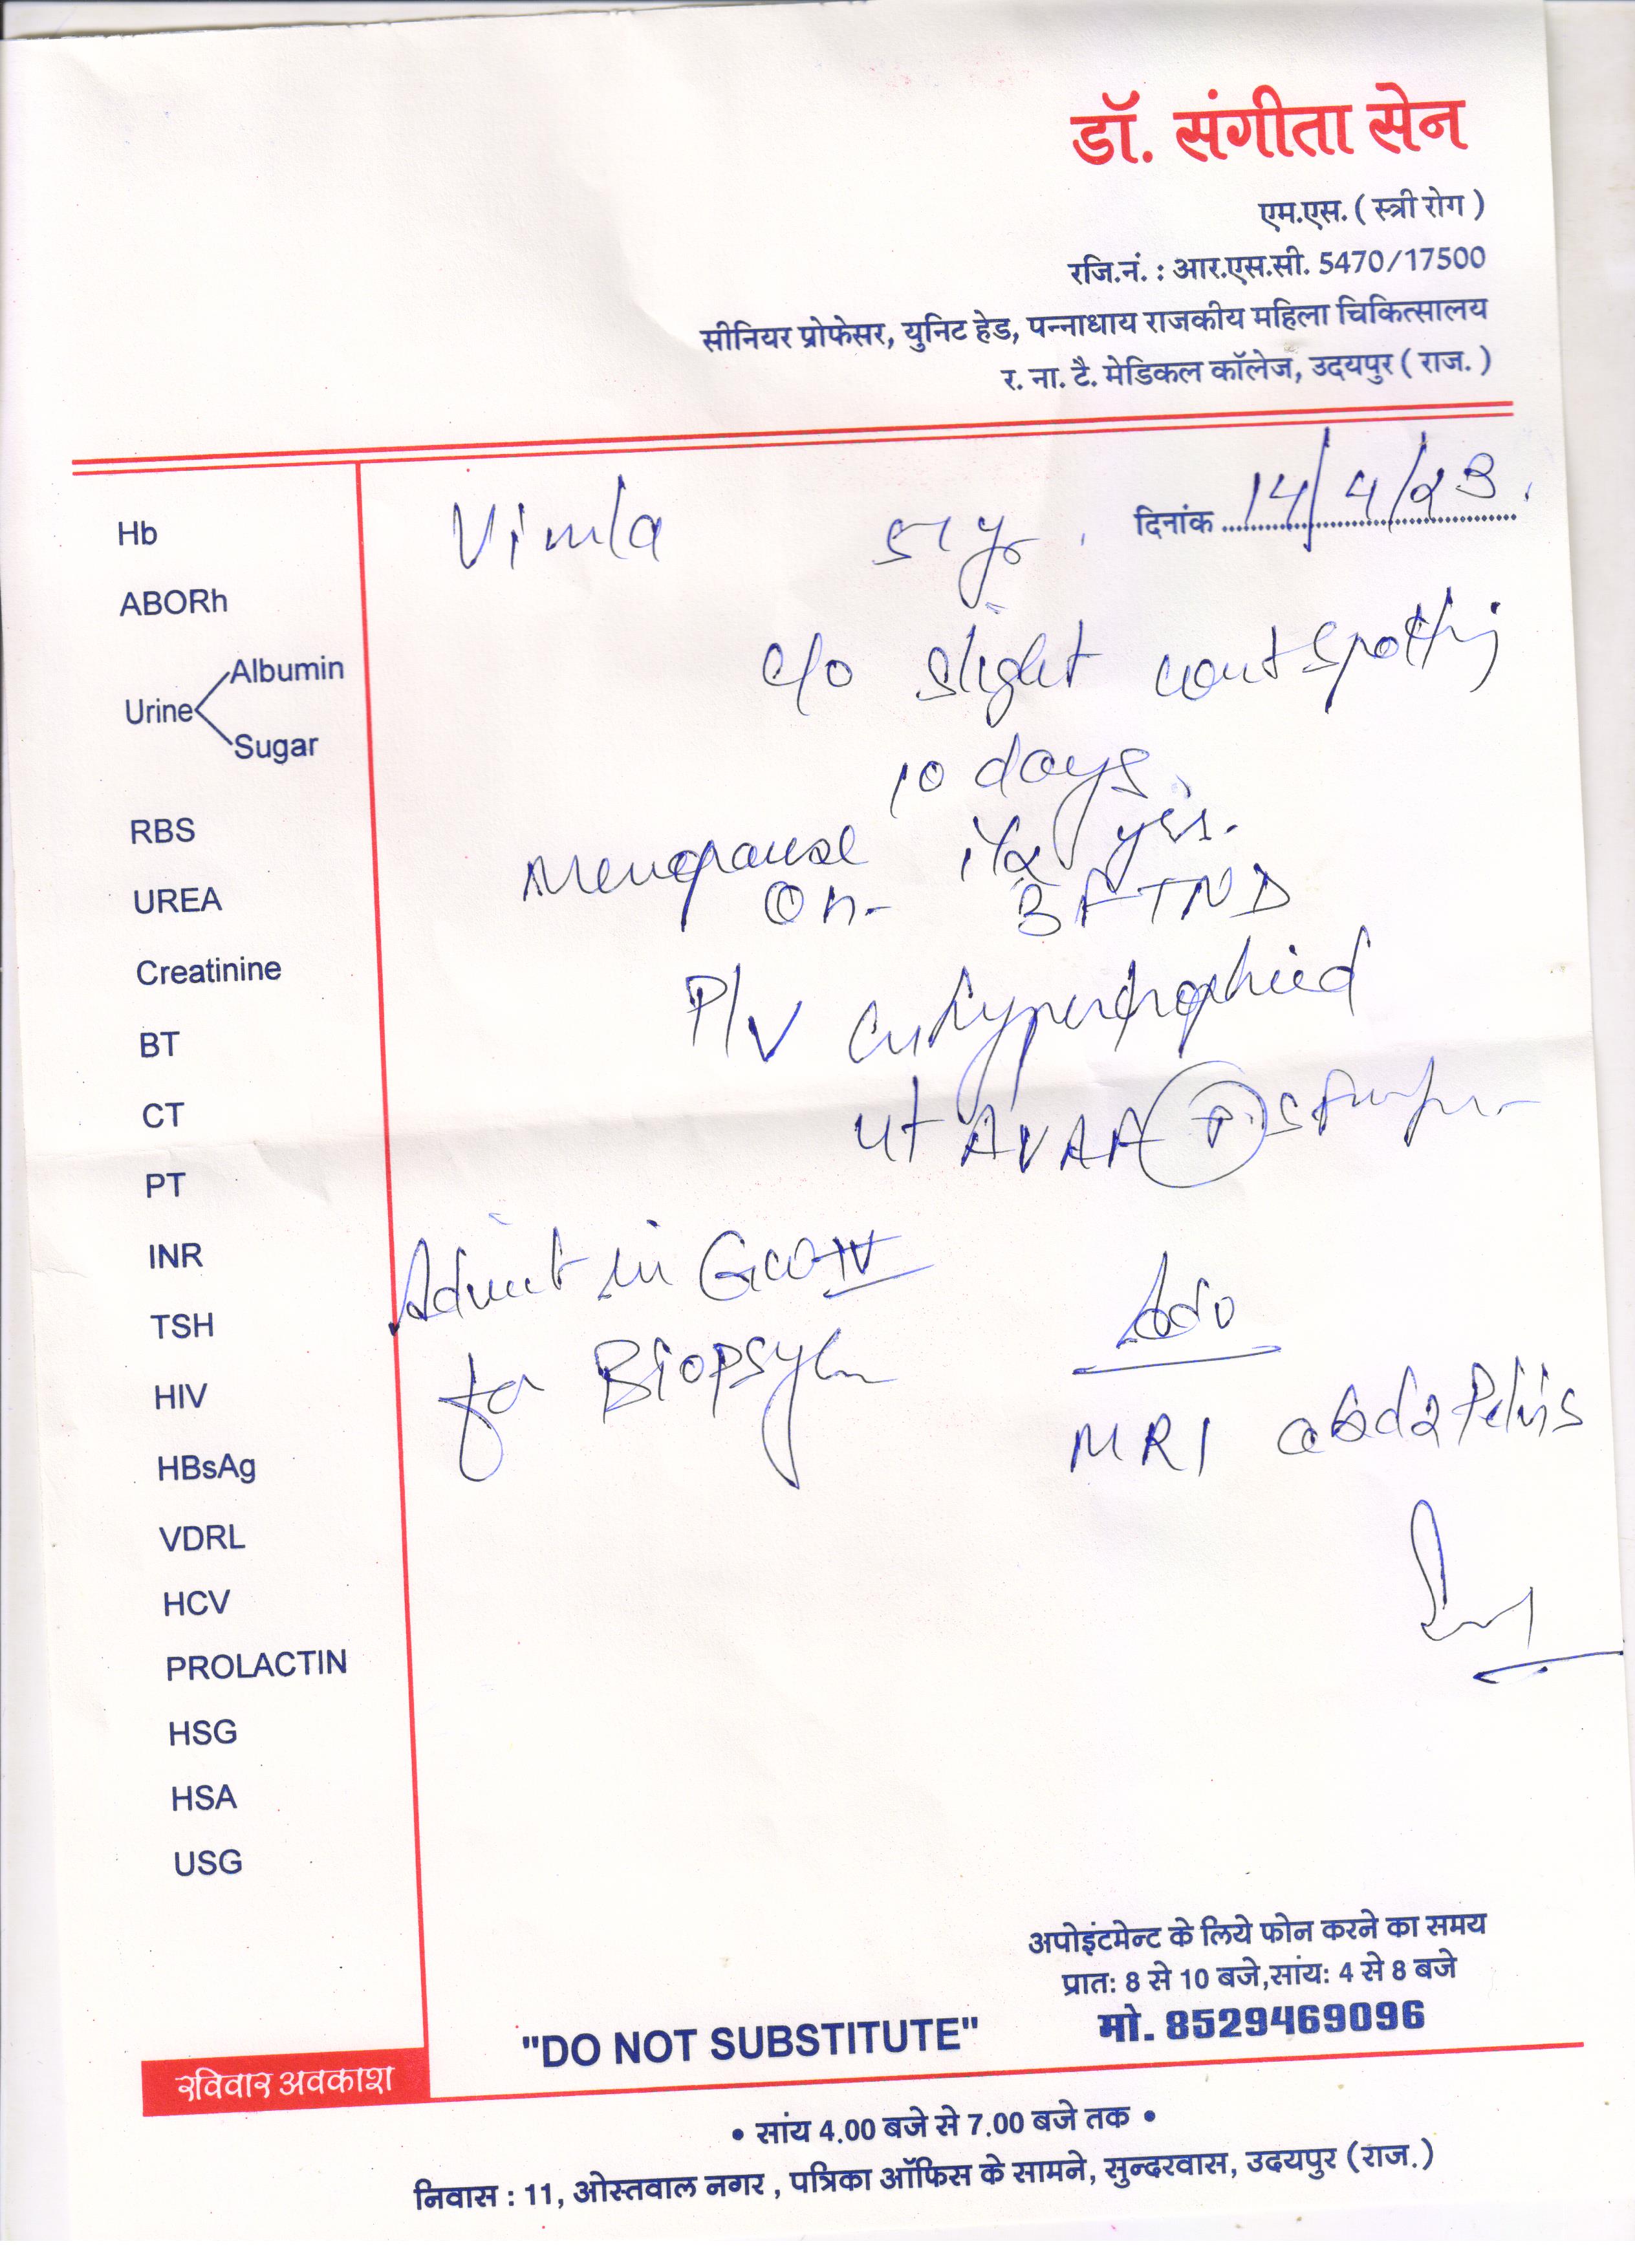 डॉ. संगीता सेन
एम.एस. ( स्त्री रोग )
रजि.नं. : आर.एस.सी. 5470/17500
सीनियर प्रोफेसर, युनिट हेड, पन्नाधाय राजकीय महिला चिकित्सालय
र. ना. टै. मेडिकल कॉलेज, उदयपुर ( राज. )
दिनांक 14/4/23.
Vimla 51 yr.
c/o slight cont spotting
10 days
Menopause 1½ yrs.
OH- 3 FTND
P/V Cx hypertrophied
ut AVAF
Admit in
for Biopsy
Adv
MRI abd & Pelvis
Hb
ABORh
Urine
Albumin
Sugar
RBS
UREA
Creatinine
BT
CT
PT
INR
TSH
HIV
HBsAg
VDRL
HCV
PROLACTIN
HSG
HSA
USG
अपोइंटमेन्ट के लिये फोन करने का समय
प्रातः 8 से 10 बजे,सांयः 4 से 8 बजे
मो. 8529469096
"DO NOT SUBSTITUTE"
रविवार अवकाश
• सांय 4.00 बजे से 7.00 बजे तक •
निवास : 11, ओस्तवाल नगर , पत्रिका ऑफिस के सामने, सुन्दरवास, उदयपुर (राज.)